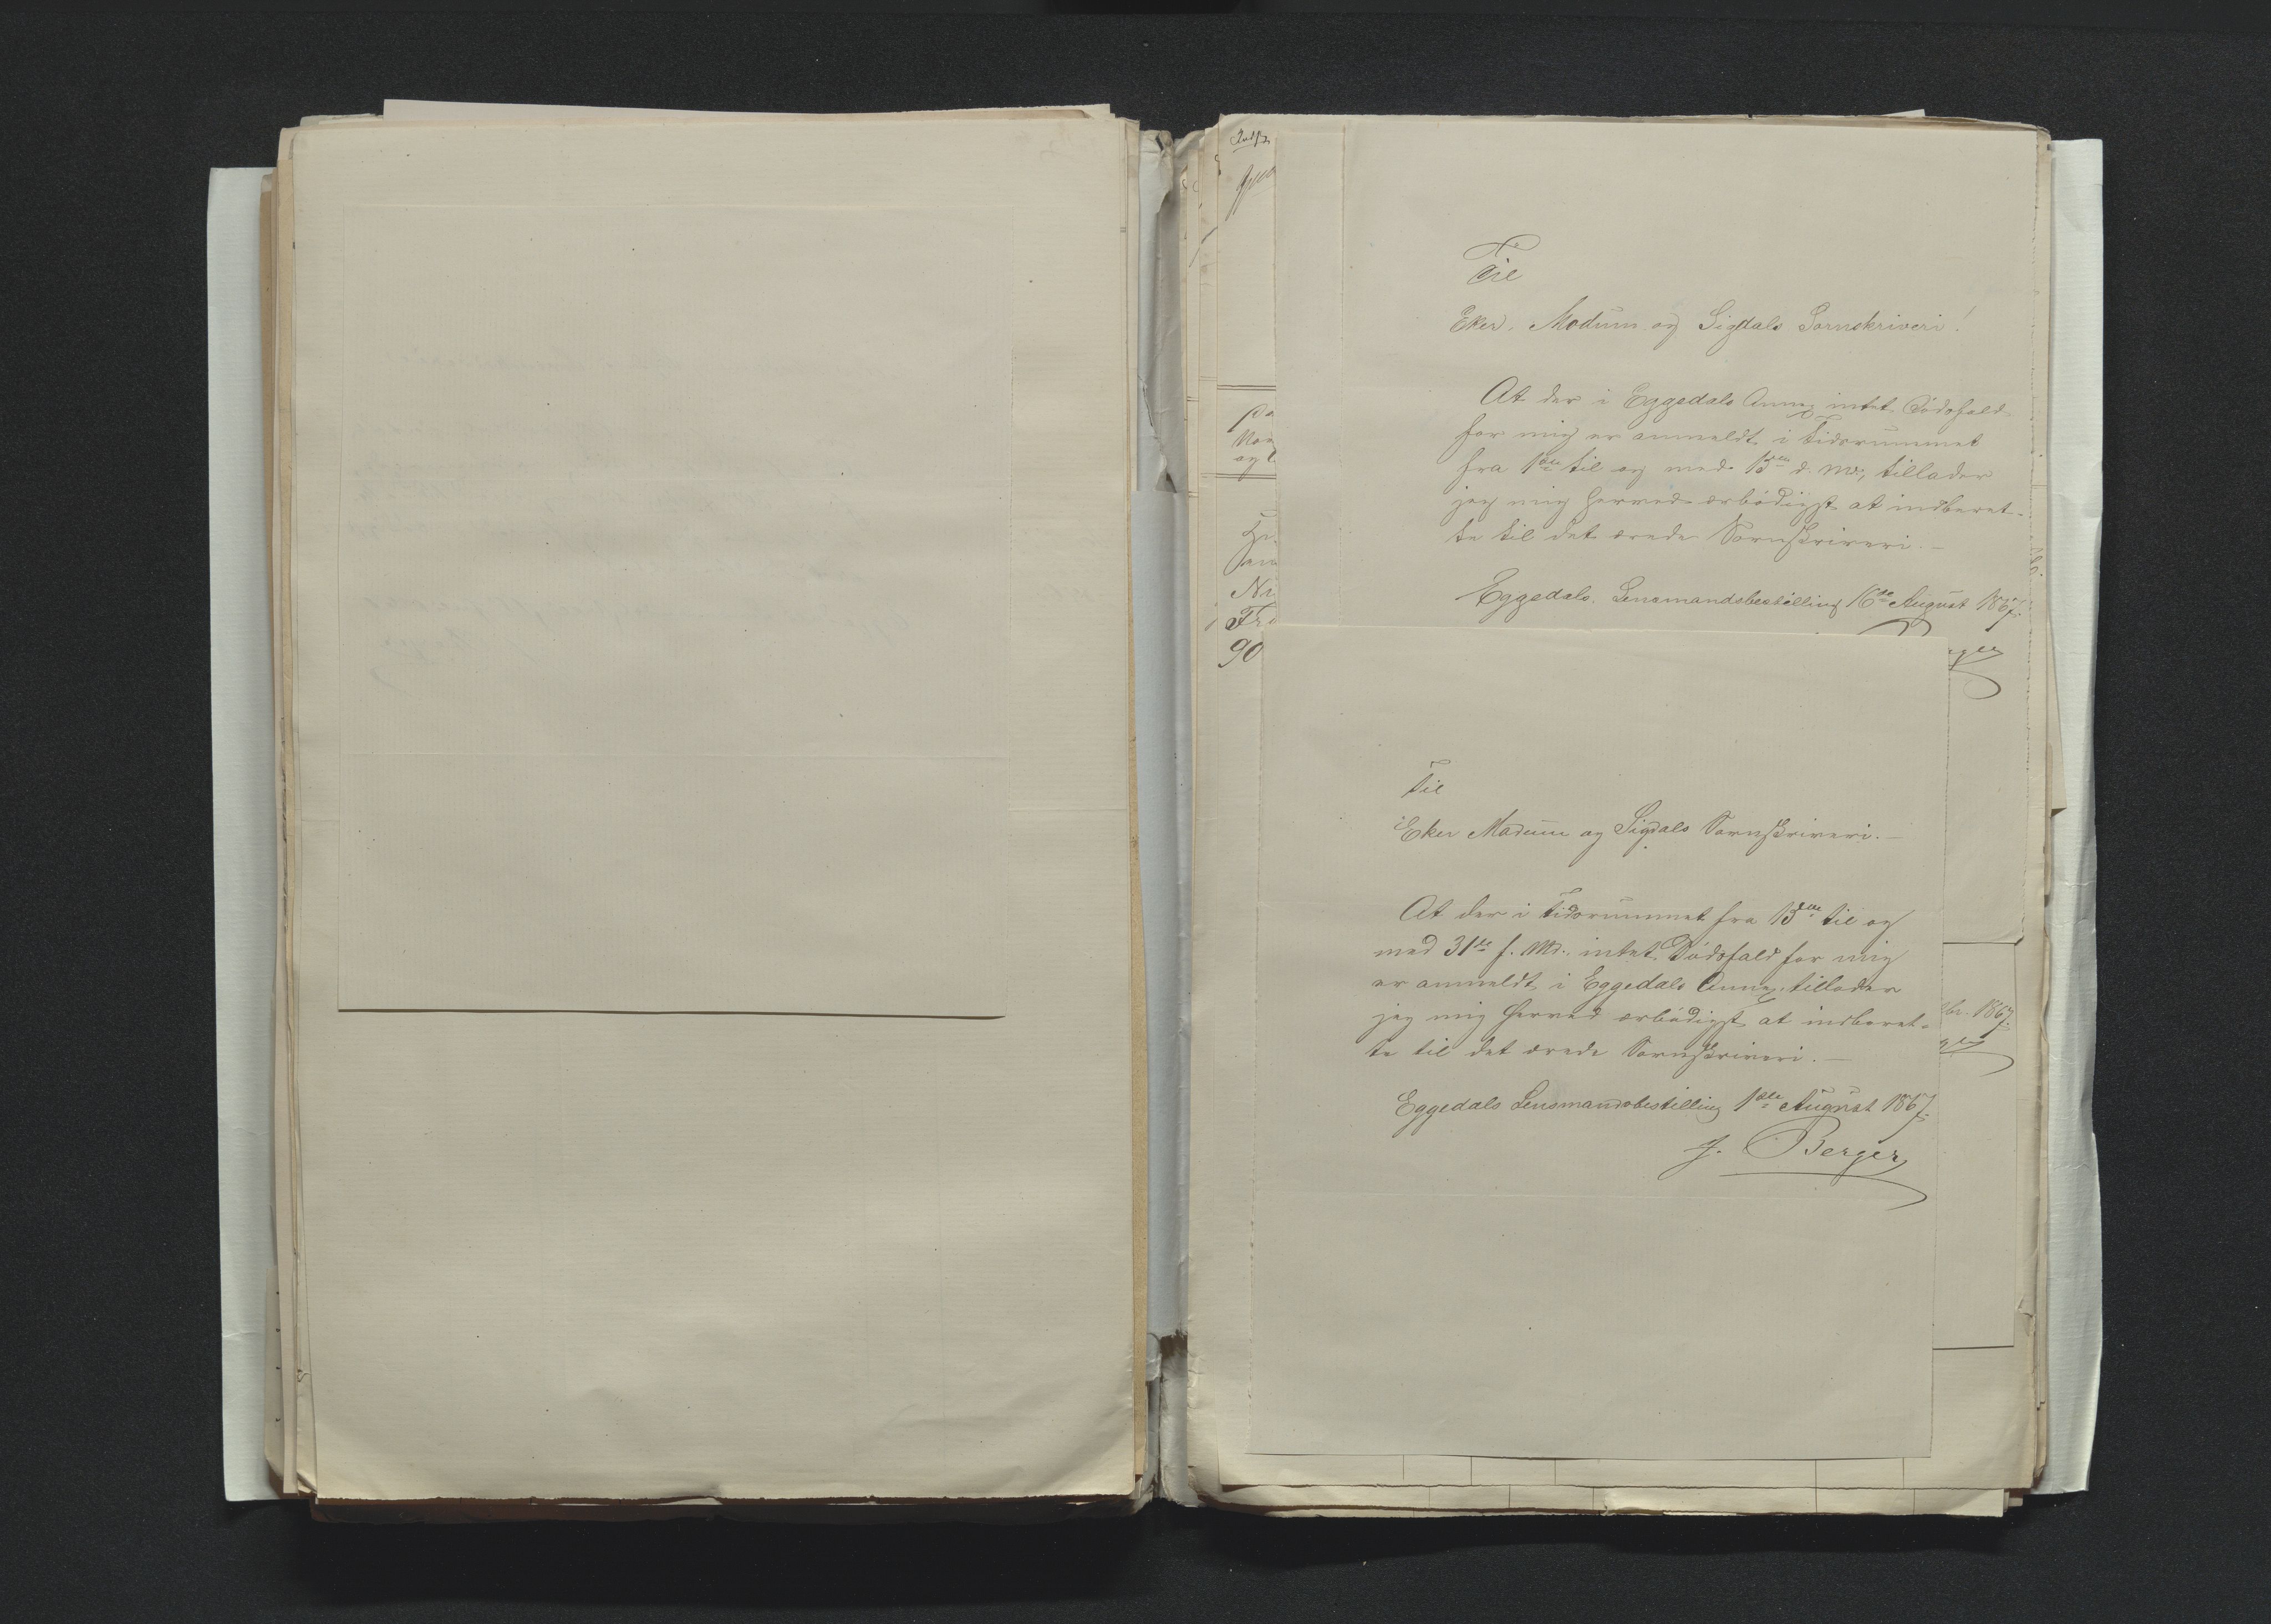 Til
Eker, Modum og Sigdals Sornskriveri!
At der i Eggedals Annex intet Dödsfald
for mig er anmeldt i Tidsrummet
fra 1ste til og med 15de d. Md., tillader
jeg mig herved ærbödigst at indberet-
te til det ærede Sornskriveri. —
Eggedals Lensmandsbestilling 16de August 1867.
Til
Eker Modum og Sigdals Sornskriveri. —
At der i Tidsrummet fra 15de til og
med 31te f. Md. intet Dödsfald for mig
er anmeldt i Eggedals Annex, tillader
jeg mig herved ærbödigst at indberet-
te til det ærede Sornskriveri. —
Eggedals Lensmandsbestilling 1ste August 1867.
J. Berger
Nr
90
br. 1867.